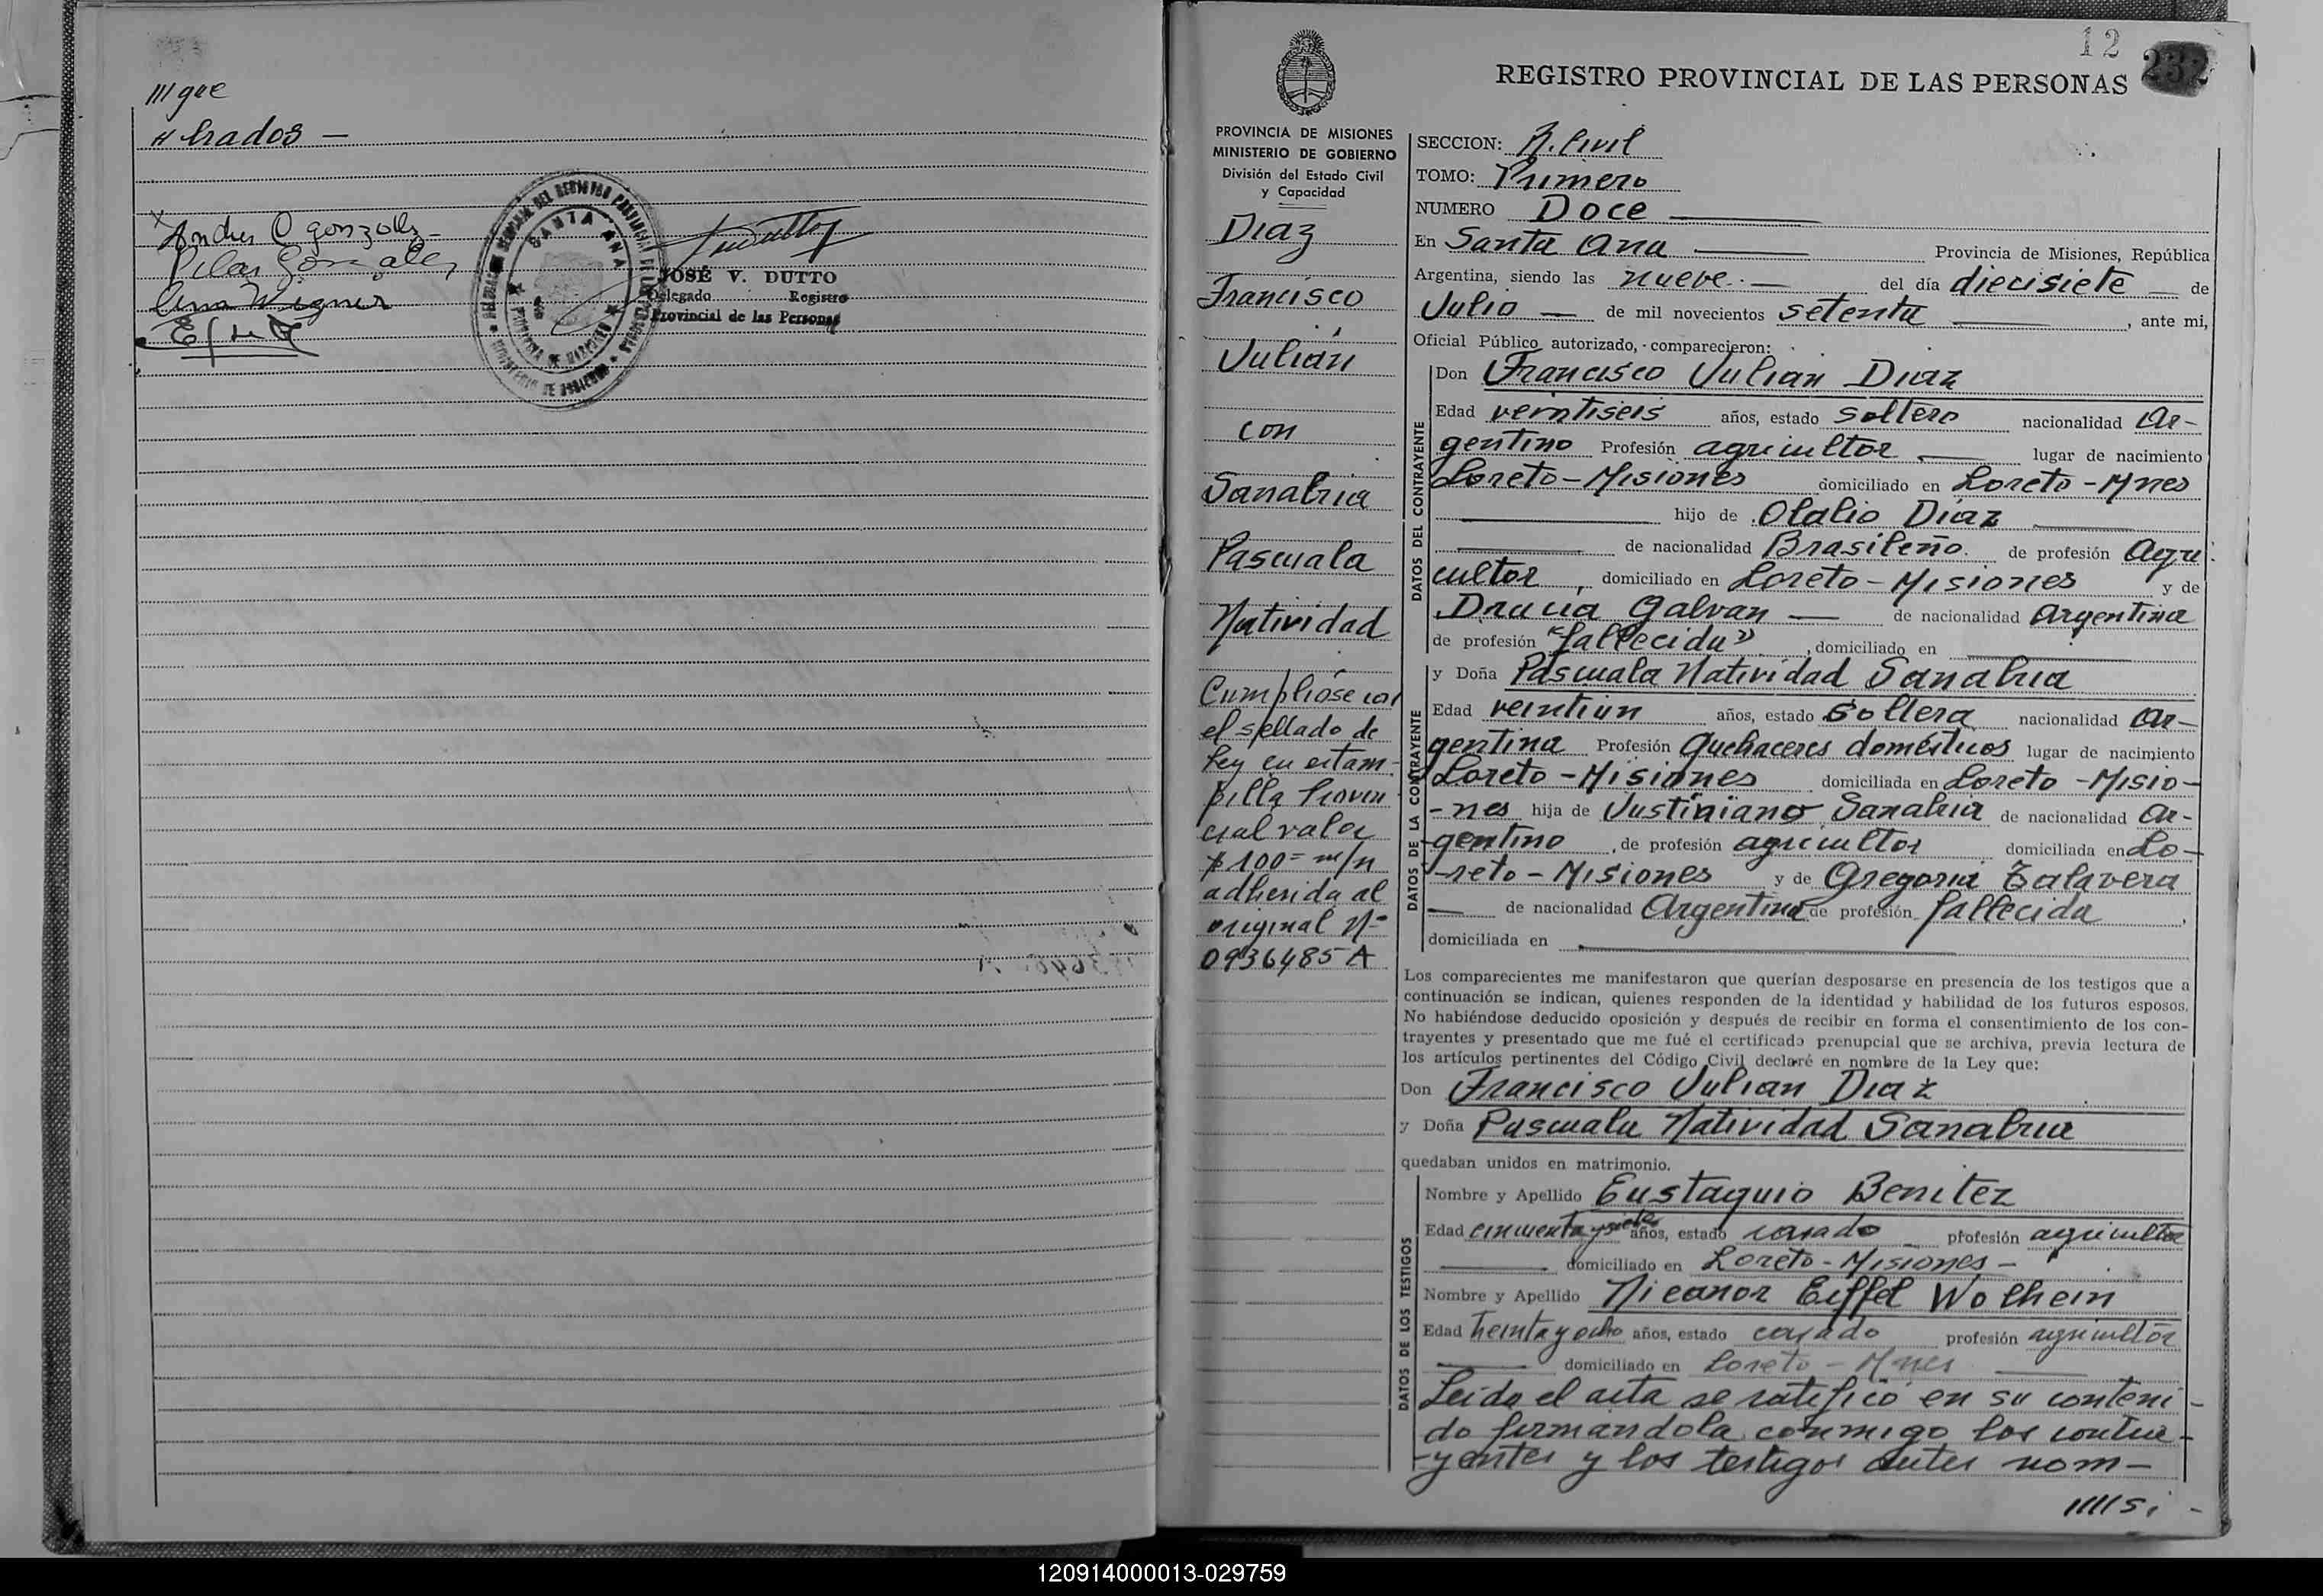 ///que
" brados —
Andres C gonzalez
Pilar Gonzalez
SANTA ANA
JOSÉ V. DUTTO
Delegado Registro
Provincial de las Personas
12
232
REGISTRO PROVINCIAL DE LAS PERSONAS
PROVINCIA DE MISIONES
MINISTERIO DE GOBIERNO
División del Estado Civil
y Capacidad
Diaz
Francisco
Julián
con
Sanabria
Pascuala
Natividad
Cumplióse con
el sellado de
Ley en estam-
pilla Provin
cial valor
$ 100= m/n
adherida al
original Nº
0936485 A
SECCION: R. Civil
TOMO: Primero
NUMERO Doce
En Santa Ana Provincia de Misiones, República
Argentina, siendo las nueve.- del día diecisiete de
Julio de mil novecientos setenta, ante mi,
Oficial Público autorizado, comparecieron:
DATOS DEL CONTRAYENTE
Don Francisco Julian Diaz
Edad veintiseis años, estado soltero nacionalidad Ar-
gentino Profesión agricultor lugar de nacimiento
Loreto - Misiones domiciliado en Loreto - Mnes
hijo de Olalio Díaz
de nacionalidad Brasileño. de profesión Agri
cultor, domiciliado en Loreto - Misiones y de
Drucia Galvan — de nacionalidad Argentina
de profesión "fallecida", domiciliado en
DATOS DE LA CONTRAYENTE
y Doña Pascuala Natividad Sanabria
Edad veintiun años, estado Soltera nacionalidad Ar-
gentina Profesión Quehaceres domésticos lugar de nacimiento
Loreto - Misiones domiciliada en Loreto - Misio-
-nes hija de Justiniano Sanabria de nacionalidad Ar-
gentino, de profesión agricultor domiciliada en Lo-
-reto - Misiones y de Gregoria Talavera
— de nacionalidad Argentina de profesión fallecida,
domiciliada en
Los comparecientes me manifestaron que querían desposarse en presencia de los testigos que a
continuación se indican, quienes responden de la identidad y habilidad de los futuros esposos.
No habiéndose deducido oposición y después de recibir en forma el consentimiento de los con-
trayentes y presentado que me fué el certificado prenupcial que se archiva, previa lectura de
los artículos pertinentes del Código Civil declaré en nombre de la Ley que:
Don Francisco Julian Diaz
y Doña Pascuala Natividad Sanabria
quedaban unidos en matrimonio.
DATOS DE LOS TESTIGOS
Nombre y Apellido Eustaquio Benitez
Edad cincuenta y siete años, estado casado profesión agricultor
domiciliado en Loreto - Misiones -
Nombre y Apellido Nicanor Eiffel Wolhein
Edad treinta y ocho años, estado casado profesión agricultor
domiciliado en Loreto - Mnes
Leida el acta se ratificó en su conteni-
do firmandola conmigo los contra-
-yentes y los testigos antes nom-
/////si -
120914000013-029759